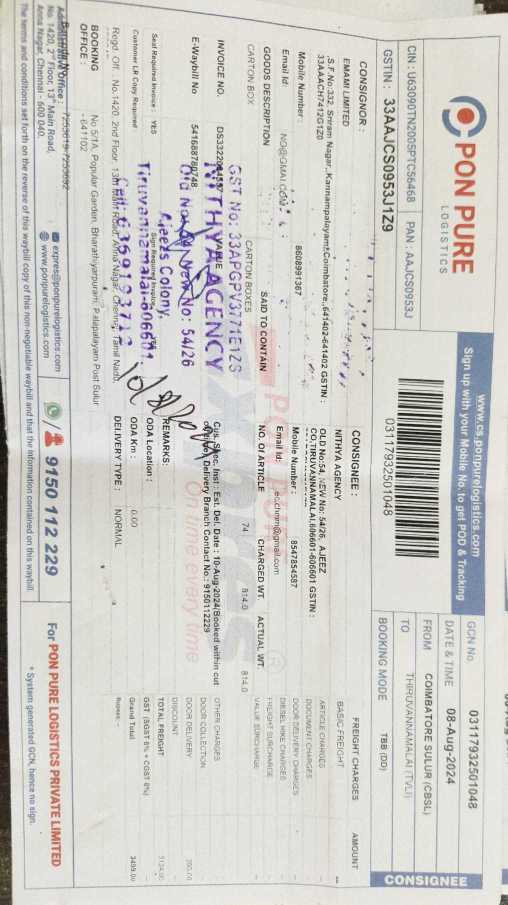 PON PURE
LOGISTICS
www.cs.ponpurelogistics.com
Sign up with your Mobile No. to get POD & Tracking
CIN : U63090TN2005PTC56468 PAN : AAJCS0953J
GSTIN : 33AAJCS0953J1Z9
03117932501048
GCN No. 03117932501048
DATE & TIME 08-Aug-2024
FROM COIMBATORE SULUR (CBSL)
TO THIRUVANNAMALAI (TVLI)
BOOKING MODE TBB (DD)
CONSIGNEE
CONSIGNOR :
EMAMI LIMITED
S.F.No:332, Sriram Nagar, Kannampalayam,Coimbatore,,641402-641402 GSTIN :
33AAACH7412G1Z0
Mobile Number : 8608991367
Email Id: NG@GMAI.COM
CONSIGNEE :
NITHYA AGENCY
OLD No:54, NEW No: 54/26, AJEEZ
CO,TIRUVANNAMALAI,606601-606601 GSTIN :
Mobile Number : 8547854587
Email Id:
FREIGHT CHARGES AMOUNT
BASIC FREIGHT
ARTICLE CHARGES
DOCUMENT CHARGES
DOOR DELIVERY CHARGES
DIESEL HIKE CHARGES
FREIGHT SURCHARGE
VALUE SURCHARGE
OTHER CHARGES
DOOR COLLECTION
DOOR DELIVERY
DISCOUNT
TOTAL FREIGHT
GST (SGST 6% + CGST 6%)
Grand Total 3499.00
Rupees:
GOODS DESCRIPTION SAID TO CONTAIN NO. OF ARTICLE CHARGED WT. ACTUAL WT.
CARTON BOX CARTON BOXES 74 814.0 814.0
GST No: 33APGPV3771E1ZS
NITHYA AGENCY
Old No: 54 New No: 54/26
Ajeez Colony,
Tiruvannamalai-606601.
INVOICE NO.
E-Waybill No 541688780748
Seal Required Invoice : YES
Customer LR Copy Required
Cus. Spec. Inst : Est. Del. Date : 10-Aug-2024/Booked within cut
Delivery Branch Contact No.: 9150112229
REMARKS:
ODA Location :
ODA Km : 0.00
DELIVERY TYPE : NORMAL
On time every time
Regd. Off. : No.1420, 2nd Floor, 13th Main Road, Anna Nagar, Chennai, Tamil Nadu,
BOOKING OFFICE : No 5/1A, Popular Garden, Bharathiyanpuram, Palapalayam Post Sulur
-641102
Administrative Office :
No. 1420, 2nd Floor, 13th Main Road,
Anna Nagar, Chennai - 600 040.
express@ponpurelogistics.com
www.ponpurelogistics.com
9150 112 229
For PON PURE LOGISTICS PRIVATE LIMITED
* System generated GCN, hence no sign.
The terms and conditions set forth on the reverse of this waybill copy of this non-negotiable waybill and that the information contained on this waybill.